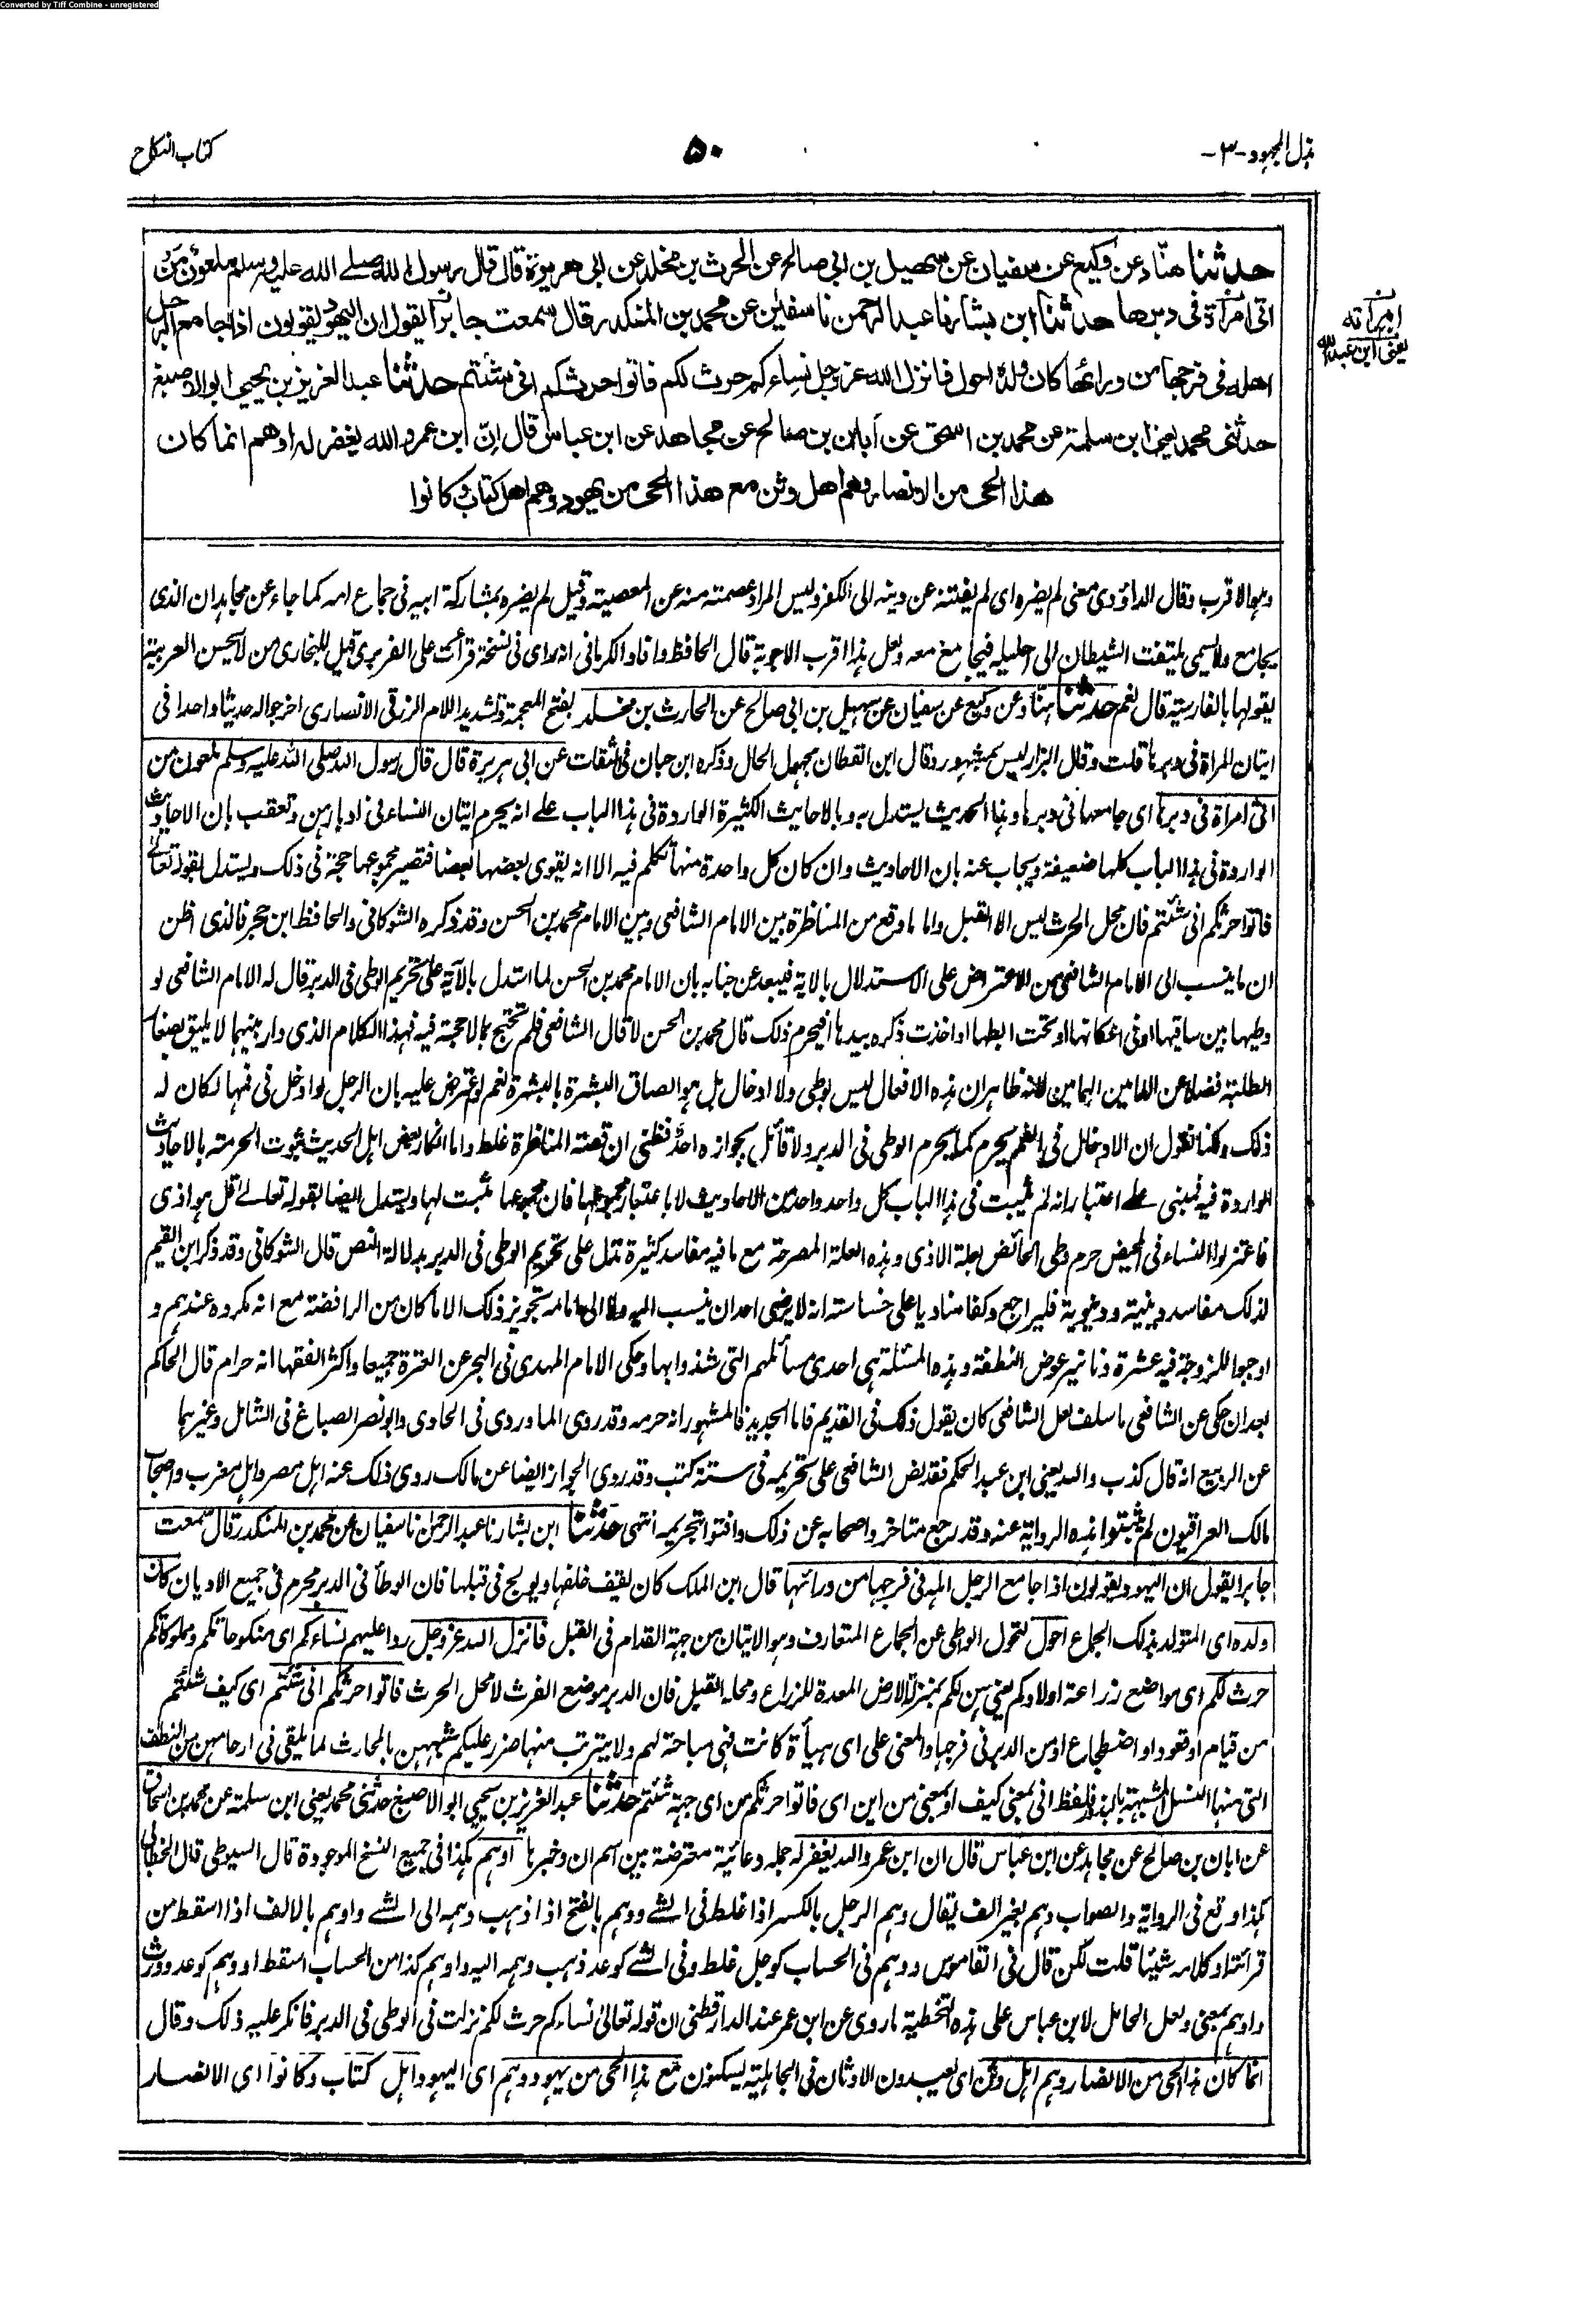 Converted by Tiff Combine - unregistered
بذل المجهود -٣-
٥٠
كتاب النكاح
حدثنا هناد عن وكيع عن سفيان عن سهيل بن ابى صالح عن الحرث بن مخلد عن ابى هريرة قال قال رسول الله صلے الله عليه وسلم ملعون من
اتى امرأة فى دبرها حدثنا ابن بشار نا عبد الرحمن نا سفين عن محمد بن المنكدر قال سمعت جابرا يقول ان اليهود يقولون اذا جامع الرجل
اهله فى فرجها من ورائها كان ولدة احول فانزل الله عزوجل نساءكم حرث لكم فاتوا حرثكم انى شئتم حدثنا عبد العزيز بن يحيى ابو الاصبغ
حدثنى محمد يعنى ابن سلمة عن محمد بن اسحق عن أبان بن صالح عن مجاهد عن ابن عباس قال انّ ابن عمر والله يغفر له اوهم انما كان
هذا الحى من الانصار وهم اهل وثن مع هذا الحى من يهود وهم اهل كتاب وكانوا
امرأته
يعنى ابن عبد الله
وهو الاقرب وقال الداؤدى معنى لم يضره اى لم يفتنه عن دينه الى الكفر وليس المراد عصمته منه عن المعصية وقيل لم يضره بمشاركة ابيه فى جماع امه كما جاء عن مجاهد ان الذى
يجامع ولا يسمى يلتفت الشيطان الى احليله فيجامع معه ولعل هذا اقرب الاجوبة قال الحافظ وافاد الكرمانى انه راى فى نسخة قرأت على الفربرى قيل للبخارى من لا يحسن العربية
يقولها بالفارسية قال نعم حدثنا هنّاد عن وكيع عن سفيان عن سهيل بن ابى صالح عن الحارث بن مخلد بفتح المعجمة وتشديد اللام الزرقى الانصارى اخرجوا له حديثا واحدا فى
ايتان المراة فى دبرها قلت وقال البزار ليس بمشهور وقال ابن القطان مجهول الحال وذكره ابن حبان فى الثقات عن ابى هريرة قال قال رسول الله صلى الله عليه وسلم ملعون من
اتى امراة فى دبرها اى جامعها فى دبرها وهذا الحديث يستدل به وبالاحاديث الكثيرة الواردة فى هذا الباب علے انه يحرم ايتان النساء فى ادبارهن وتعقب بان الاحاديث
الواردة فى هذا الباب كلها ضعيفة ويجاب عنه بان الاحاديث وان كان كل واحدة منها تكلم فيه الا انه يقوى بعضها بعضا فتصير مجموعها حجة فى ذلك ويستدل بقوله تعالى
فاتوا حرثكم انى شئتم فان محل الحرث ليس الا القبل واما ما وقع من المناظرة بين الامام الشافعى وبين الامام محمد بن الحسن وقد ذكره الشوكانى والحافظ ابن حجر فالذى اظن
ان ما ينسب الى الامام الشافعى من الاعتراض على الاستدلال بالاية فيبعد عن جنابه بان الامام محمد بن الحسن لما استدل بالآية على تحريم الوطى فى الدبر قال له الامام الشافعى لو
وطيها بين ساقيها او فى اعكانها او تحت ابطها او اخذت ذكره بيدها أفيحرم ذلك قال محمد بن الحسن لا قال الشافعى فلم تحتج بما لا حجة فيه فهذا الكلام الذى دار بينهما لا يليق بصغار
الطلبة فضلا عن الامامين الهمامين فانه ظاهر ان هذه الافعال ليس بوطى ولا ادخال بل هو الصاق البشرة بالبشرة نعم لو اعترض عليه بان الرجل لو ادخل فى فمها لكان له
ذلك وكنا نقول ان الادخال فى الفم يحرم كما يحرم الوطى فى الدبر ولا قائل بجوازه احد فظنى ان قصة المناظرة غلط واما انكار بعض اهل الحديث ثبوت الحرمة بالاحاديث
الواردة فيه فمبنى علے اعتبار انه لم يثبت فى هذا الباب كل واحد واحد من الاحاديث لا باعتبار مجموعها فان مجموعها مثبت لها ويستدل ايضا بقوله تعالے قل هو اذى
فاعتزلوا النساء فى المحيض حرم وطى الحائض بعلة الاذى وهذه العلة المصرحة مع ما فيه مفاسد كثيرة تدل على تحريم الوطى فى الدبر بدلالة النص قال الشوكانى وقد ذكر ابن القيم
لذلك مفاسد دينية ودنيوية فليراجع وكفا مناديا على خساسته انه لا يرضى احد ان ينسب اليه ولا الى امامه تجويز ذلك الا ما كان من الرافضة مع انه مكروه عندهم و
اوجبوا للزوجة فيه عشرة دنانير عوض النطفة وهذه المسئلة هى احدى مسائلهم التى شذوا بها وحكى الامام المهدى فى البحر عن العترة جميعا واكثر الفقها انه حرام قال الحاكم
بعد ان حكى عن الشافعى ما سلف لعل الشافعى كان يقول ذلك فى القديم فاما الجديد فالمشهور انه حرمه وقد روى الماوردى فى الحاوى وابو نصر الصباغ فى الشامل وغيرهما
عن الربيع انه قال كذب والله يعنى ابن عبد الحكم فقد نص الشافعى على تحريمه فى ستة كتب وقد روى الجواز ايضا عن مالك روى ذلك عنه اهل مصر واهل مغرب واصحاب
مالك العراقيون لم يثبتوا هذه الرواية عنه وقد رجع متاخروا صحابه عن ذلك وافتوا بتحريمه انتهى حدثنا ابن بشار نا عبد الرحمن نا سفيان عن محمد بن المنكدر قال سمعت
جابرا يقول ان اليهود يقولون اذا جامع الرجل اهله فى فرجها من ورائها قال ابن الملك كان يقف خلفها ويولج فى قبلها فان الوطأ فى الدبر محرم فى جميع الاديان كان
ولده اى المتولد بذلك الجماع احول لتحول الواطى عن الجماع المتعارف وهو الاتيان من جهة القدام فى القبل فانزل الله عزوجل ردا عليهم نساءكم اى منكوحاتكم ومملوكاتكم
حرث لكم اى مواضع زراعة اولادكم يعنى هن لكم بمنزلة الارض المعدة للزراع ومحله القبل فان الدبر موضع الفرث لا محل الحرث فاتوا حرثكم انى شئتم اى كيف شئتم
من قيام او قعود او اضطجاع او من الدبر فى فرجها والمعنى على اى هيأة كانت فهى مباحة لهم ولا يترتب منها ضرر عليكم شبههن بالمحارث لما يلقى فى ارحامهن من النطف
التى منها النسل المشبهة بالبذر فلفظ انى بمعنى كيف او بمعنى من اين اى فاتوا حرثكم من اى جهة شئتم حدثنا عبد العزيز بن يحيى ابو الاصبغ حدثنى محمد يعنى ابن سلمة عن محمد بن اسحاق
عن ابان بن صالح عن مجاهد عن ابن عباس قال ان ابن عمر والله يغفر له جمله دعائية معترضة بين اسم ان وخبرها اوهم هكذا فى جميع النسخ الموجودة قال السيوطى قال الخطابى
هكذا وقع فى الرواية والصواب وهم بغير الف يقال وهم الرجل بالكسر اذا غلط فى الشے ووهم بالفتح اذا ذهب وهمه الى الشے واوهم بالالف اذا اسقط من
قرائته او كلامه شيئا قلت لكن قال فى القاموس ووهم فى الحساب كوجل غلط وفى الشے كوعد ذهب وهمه اليه واوهم كذا من الحساب اسقط او وهم كوعد وورث
واوهم بمعنى ولعل الحامل لابن عباس على هذه التخطية ما روى عن ابن عمر عند الدارقطنى ان قوله تعالى نساءكم حرث لكم نزلت فى الوطى فى الدبر فانكر عليه ذلك وقال
انما كان هذا الحى من الانصار وهم اهل وثن اى يعبدون الاوثان فى الجاهلية يسكنون مع هذا الحى من يهود وهم اى اليهود اهل كتاب وكانوا اى الانصار